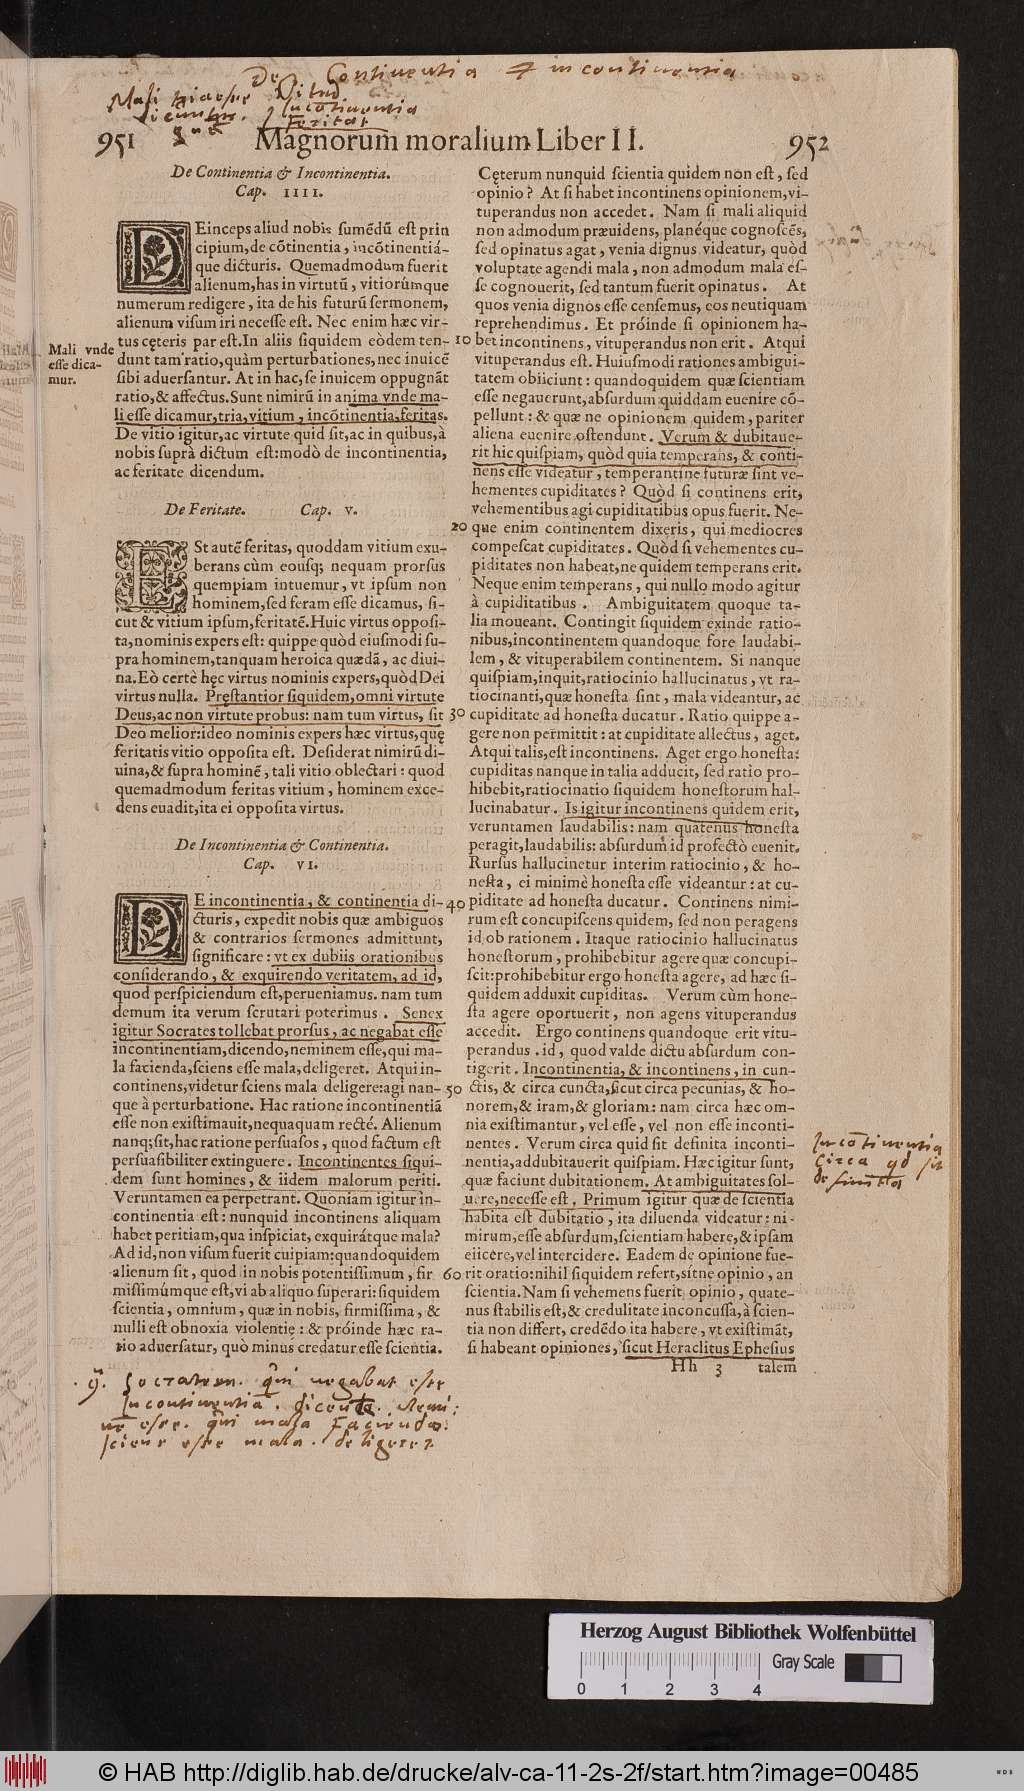 De Continentia & incontinentia
Mali
Incōtinentia
Feritas
951 Magnorum moralium Liber II. 952
De Continentia & Incontinentia.
Cap. IIII.
DEinceps aliud nobis sumēdū est prin
cipium, de cōtinentia, incōtinentiá-
que dicturis. Quemadmodum fuerit
alienum, has in virtutū, vitiorúmque
numerum redigere, ita de his futurū sermonem,
alienum visum iri necesse est. Nec enim hæc vir-
tus cęteris par est. In aliis siquidem eòdem ten-
dunt tam ratio, quàm perturbationes, nec inuicē
sibi aduersantur. At in hac, se inuicem oppugnāt
ratio, & affectus. Sunt nimirū in anima vnde ma-
li esse dicamur, tria, vitium, incōtinentia, feritas.
De vitio igitur, ac virtute quid sit, ac in quibus, à
nobis suprà dictum est: modò de incontinentia,
ac feritate dicendum.
Mali vnde
esse dica-
mur.
De Feritate. Cap. V.
ESt autē feritas, quoddam vitium exu-
berans cùm eousq; nequam prorsus
quempiam intuemur, vt ipsum non
hominem, sed feram esse dicamus, si-
cut & vitium ipsum, feritatē. Huic virtus opposi-
ta, nominis expers est: quippe quòd eiusmodi su-
pra hominem, tanquam heroica quædā, ac diui-
na. Eò certè hęc virtus nominis expers, quòd Dei
virtus nulla. Pręstantior siquidem, omni virtute
Deus, ac non virtute probus: nam tum virtus, sit
Deo melior: ideo nominis expers hæc virtus, quę
feritatis vitio opposita est. Desiderat nimirū di-
uina, & supra hominē, tali vitio oblectari: quod
quemadmodum feritas vitium, hominem exce-
dens euadit, ita ei opposita virtus.
De Incontinentia & Continentia.
Cap. VI.
DE incontinentia, & continentia di-
cturis, expedit nobis quæ ambiguos
& contrarios sermones admittunt,
significare: vt ex dubiis orationibus
considerando, & exquirendo veritatem, ad id,
quod perspiciendum est, perueniamus. nam tum
demum ita verum scrutari poterimus. Senex
igitur Socrates tollebat prorsus, ac negabat esse
incontinentiam, dicendo, neminem esse, qui ma-
la facienda, sciens esse mala, deligeret. Atqui in-
continens, videtur sciens mala deligere: agi nan-
que à perturbatione. Hac ratione incontinentiā
esse non existimauit, nequaquam recté. Alienum
nanq; sit, hac ratione persuasos, quod factum est
persuasibiliter extinguere. Incontinentes siqui-
dem sunt homines, & iidem malorum periti.
Veruntamen ea perpetrant. Quoniam igitur in-
continentia est: nunquid incontinens aliquam
habet peritiam, qua inspiciat, exquirátque mala?
Ad id, non visum fuerit cuipiam: quandoquidem
alienum sit, quod in nobis potentissimum, fir
missimúmque est, vi ab aliquo superari: siquidem
scientia, omnium, quæ in nobis, firmissima, &
nulli est obnoxia violentię: & próinde hæc ra-
tio aduersatur, quò minus credatur esse scientia.
Socratem. qui negabat esse
Incontinentiā.
esse. qui mala Faciendo.
sciens esse mala. deligeret
10
20
30
40
50
60
Cęterum nunquid scientia quidem non est, sed
opinio? At si habet incontinens opinionem, vi-
tuperandus non accedet. Nam si mali aliquid
non admodum præuidens, planéque cognoscēs,
sed opinatus agat, venia dignus videatur, quòd
voluptate agendi mala, non admodum mala es-
se cognouerit, sed tantum fuerit opinatus. At
quos venia dignos esse censemus, eos neutiquam
reprehendimus. Et próinde si opinionem ha-
bet incontinens, vituperandus non erit. Atqui
vituperandus est. Huiusmodi rationes ambigui-
tatem obiiciunt: quandoquidem quæ scientiam
esse negauerunt, absurdum quiddam euenire cō-
pellunt: & quæ ne opinionem quidem, pariter
aliena euenire ostendunt. Verum & dubitaue-
rit hic quispiam, quòd quia temperans, & conti-
nens esse videatur, temperantine futuræ sint ve-
hementes cupiditates? Quòd si continens erit,
vehementibus agi cupiditatibus opus fuerit. Ne-
que enim continentem dixeris, qui mediocres
compescat cupiditates. Quòd si vehementes cu-
piditates non habeat, ne quidem temperans erit.
Neque enim temperans, qui nullo modo agitur
à cupiditatibus. Ambiguitatem quoque ta-
lia moueant. Contingit siquidem exinde ratio-
nibus, incontinentem quandoque fore laudabi-
lem, & vituperabilem continentem. Si nanque
quispiam, inquit, ratiocinio hallucinatus, vt ra-
tiocinanti, quæ honesta sint, mala videantur, ac
cupiditate ad honesta ducatur. Ratio quippe a-
gere non permittit: at cupiditate allectus, aget.
Atqui talis, est incontinens. Aget ergo honesta:
cupiditas nanque in talia adducit, sed ratio pro-
hibebit, ratiocinatio siquidem honestorum hal-
lucinabatur. Is igitur incontinens quidem erit,
veruntamen laudabilis: nam quatenus honesta
peragit, laudabilis: absurdum id profectò euenit.
Rursus hallucinetur interim ratiocinio, & ho-
nesta, ei minimè honesta esse videantur: at cu-
piditate ad honesta ducatur. Continens nimi-
rum est concupiscens quidem, sed non peragens
id ob rationem. Itaque ratiocinio hallucinatus
honestorum, prohibebitur agere quæ concupi-
scit: prohibebitur ergo honesta agere, ad hæc si-
quidem adduxit cupiditas. Verum cùm hone-
sta agere oportuerit, non agens vituperandus
accedit. Ergo continens quandoque erit vitu-
perandus. id, quod valde dictu absurdum con-
tigerit. Incontinentia, & incontinens, in cun-
ctis, & circa cuncta, sicut circa pecunias, & ho-
norem, & iram, & gloriam: nam circa hæc om-
nia existimantur, vel esse, vel non esse inconti-
nentes. Verum circa quid sit definita inconti-
nentia, addubitauerit quispiam. Hæc igitur sunt,
quæ faciunt dubitationem. At ambiguitates sol-
uere, necesse est. Primum igitur quæ de scientia
habita est dubitatio, ita diluenda videatur: ni-
mirum, esse absurdum, scientiam habere, & ipsam
eiicere, vel intercidere. Eadem de opinione fue-
rit oratio: nihil siquidem refert, sítne opinio, an
scientia. Nam si vehemens fuerit opinio, quate-
nus stabilis est, & credulitate inconcussa, à scien-
tia non differt, credēdo ita habere, vt existimāt,
si habeant opiniones, sicut Heraclitus Ephesius
Hh 3 talem
Incōtinentia
circa qd sit
definita
Herzog August Bibliothek Wolfenbüttel
Gray Scale
0 1 2 3 4
© HAB http://diglib.hab.de/drucke/alv-ca-11-2s-2f/start.htm?image=00485